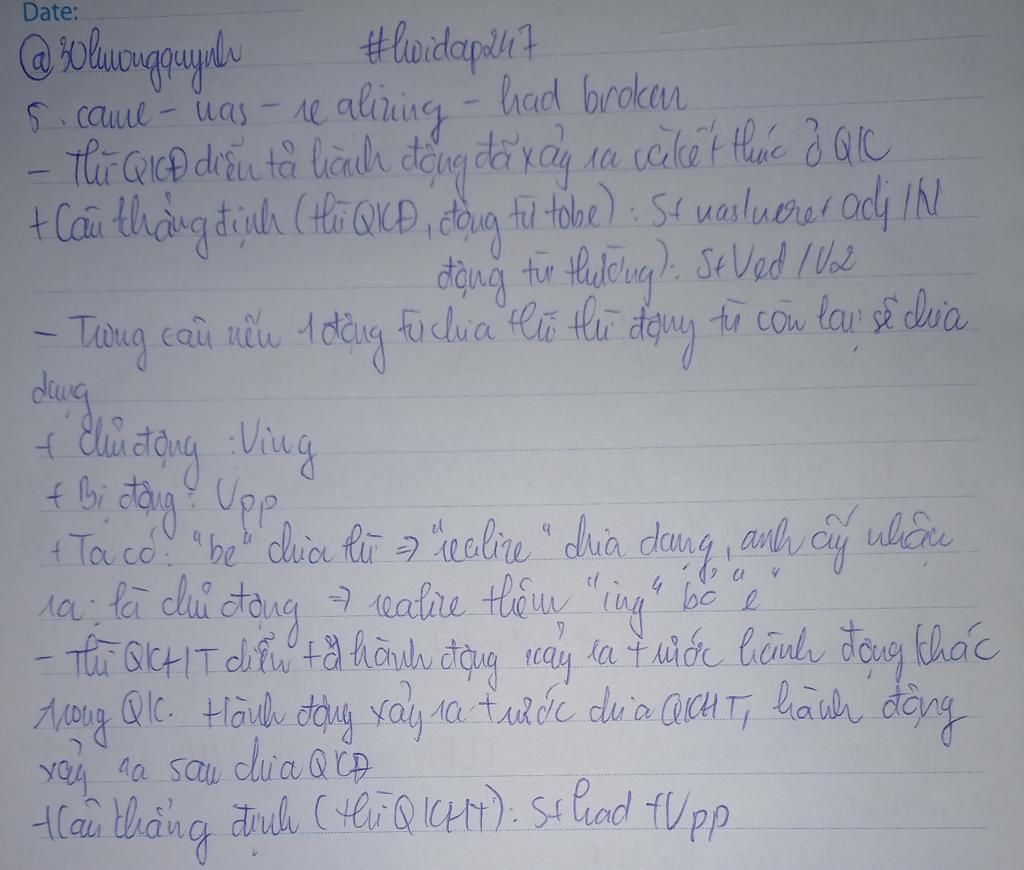 Date:
@30huongquynh #hoidap247
5. came - was - realizing - had broken
- Thì QKĐ diễn tả hành động đã xảy ra và kết thúc ở QK
+ Câu thẳng định (thì QKĐ, động từ tobe): S+ was/were+ adj/N
động từ thường): S+Ved/V2
- Trong câu nếu 1 động từ chia thì thì động từ còn lại sẽ chia
dạng
+ Chủ động : Ving
+ Bị động: Vpp
+ Ta có: "be" chia thì => "realize" chia dạng, anh ấy nhận
ra: là chủ động => realize thêm "ing" bỏ "e"
- Thì QKHT diễn tả hành động xảy ra trước hành động khác
trong QK. Hành động xảy ra trước chia QKHT, hành động
xảy ra sau chia QKĐ
+ Câu thẳng định (thì QKHT): S+had +Vpp